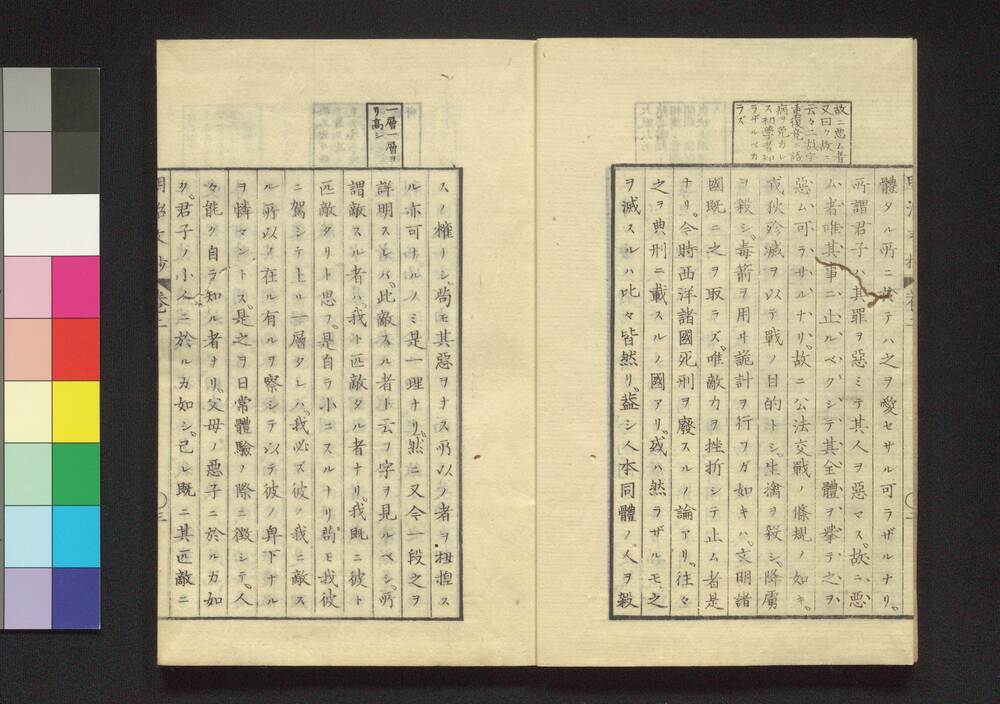 故ニ惡ム者
又曰ク故ニ
云々二故字
重復竟ニ語
病ヲ免カレ
ス初學者知
ラザルベカ
ラズ
體タル所ニ テハ之ヲ愛セサル可ラザルナリ。
所謂君子ハ其罪ヲ惡ミテ其人ヲ惡マス。故ニ惡
ム者唯其事ニ止ルベクシテ其全體ヲ擧テ之ヲ
惡ム可ラサルナリ。故ニ公法交戰ノ條規ノ如キ。
戎狄殄滅ヲ以テ戰ノ目的トシ。生擒ヲ殺シ。降虜
ヲ殺シ。毒箭ヲ用ヰ詭計ヲ行フガ如キハ。文明諸
國既ニ之ヲ取ラズ。唯敵力ヲ挫折シテ止ム者是
ナリ。今時西洋諸國死刑ヲ廢スルノ論アリ。往々
之ヲ典刑ニ載スルノ國アリ。或ハ然ラザルモ之
ヲ滅スルハ比々皆然リ。蓋シ人本同體ノ人ヲ殺
一層一層ヨ
リ高シ
スノ權リシ。苟モ其惡ヲナス所以ノ者ヲ ス
ル亦可ナルノミ是一理ナリ。然ニ又今一段之ヲ
詳明スレバ。此敵スル者ト云フ字ヲ見ルベシ。所
謂敵スル者ハ。我ト匹敵タル者ナリ。我既ニ彼ト
匹敵タリト思フ。是自ラ小ニスルナリ。苟モ我彼
ニ駕シテ上ル一層タレハ。我必ズ彼ノ我ニ敵ス
ル所以ノ在ル有ルヲ察シテ以テ彼ノ卑下ナル
ヲ憐マントス。是之ヲ日常體驗ノ際ニ徴シテ。人
々能ク自ラ知ル者ナリ。父母ノ惡子ニ於ルガ如
ク。君子ノ小人ニ於ルカ如シ。己レ既ニ其匹敵ニ